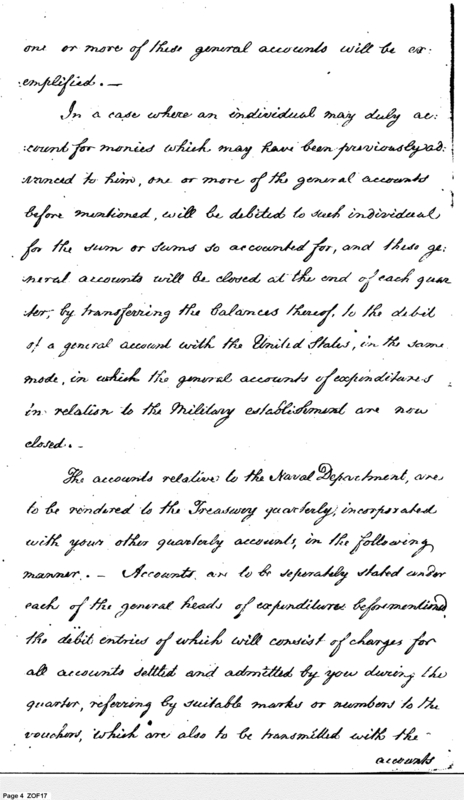 one or more of these general accounts will be ex-
emplified. —
In a case where an individual may duly ac-
count for monies which may have been previously ad-
vanced to him, one or more of the general accounts
before mentioned, will be debited to such individual
for the sum or sums so accounted for, and these ge-
neral accounts will be closed at the end of each quar
ter, by transferring the balances thereof, to the debit
of a general account with the United States, in the same
mode, in which the general accounts of expenditures
in relation to the Military establishment are now
closed. -
The accounts relative to the Naval Department, are
to be rendered to the Treasury quarterly, incorporated
with your other quarterly accounts, in the following
manner. — Accounts are to be seperately stated under
each of the general heads of expenditures beforementioned
the debit entries of which will consist of charges for
all accounts settled and admitted by you during the
quarter, referring by suitable marks or numbers to the
vouchers, which are also to be transmitted with the
accounts
Page 4 ZOF17